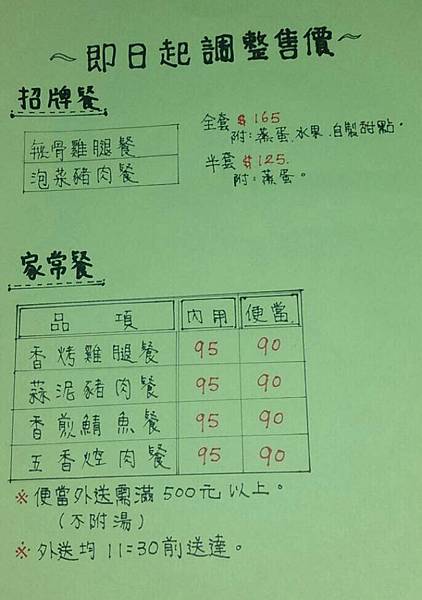 ～即日起調整售價～
招牌餐
全套 $165
附:蒸蛋.水果.自製甜點。
無骨雞腿餐
泡菜豬肉餐
半套 $125.
附:蒸蛋。
家常餐
品項 內用 便當
香烤雞腿餐 95 90
蒜泥豬肉餐 95 90
香煎鯖魚餐 95 90
五香焢肉餐 95 90
※便當外送需滿500元以上。
(不附湯)
※外送均11:30前送達。